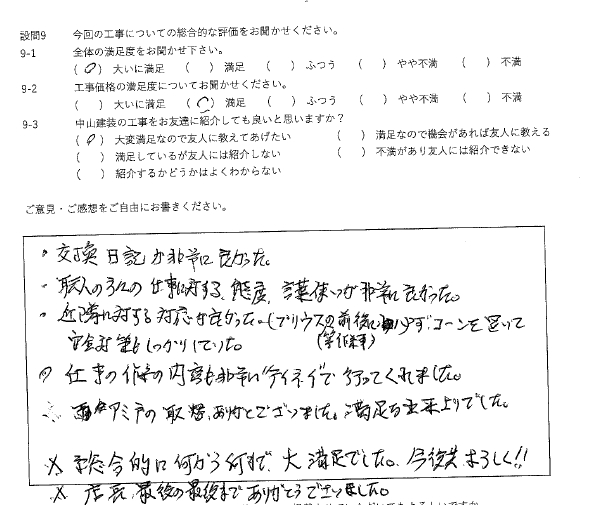 設問9 今回の工事についての総合的な評価をお聞かせください。
9-1 全体の満足度をお聞かせ下さい。
(○) 大いに満足 ( ) 満足 ( ) ふつう ( ) やや不満 ( ) 不満
9-2 工事価格の満足度についてお聞かせください。
( ) 大いに満足 (○) 満足 ( ) ふつう ( ) やや不満 ( ) 不満
9-3 中山建装の工事をお友達に紹介しても良いと思いますか?
(○) 大変満足なので友人に教えてあげたい ( ) 満足なので機会があれば友人に教える
( ) 満足しているが友人には紹介しない ( ) 不満があり友人には紹介できない
( ) 紹介するかどうかはよくわからない
ご意見・ご感想をご自由にお書きください。
・交換日記が非常に良かった。
・職人の方々の仕事に対する、態度、言葉使いが非常に良かった。
・近隣に対する対応が良かった。(プリウスの前後に必ずコーンを置いて
安全対策もしっかりしていた。(等作業車)
・仕事の作業の内容も非常に"テイネイ"で行ってくれました。
・アミ戸の取替、ありがとうございました。満足な出来上りでした。
※総合的に何から何まで、大満足でした。今後共よろしく!!
※店長、最後の最後までありがとうございました。